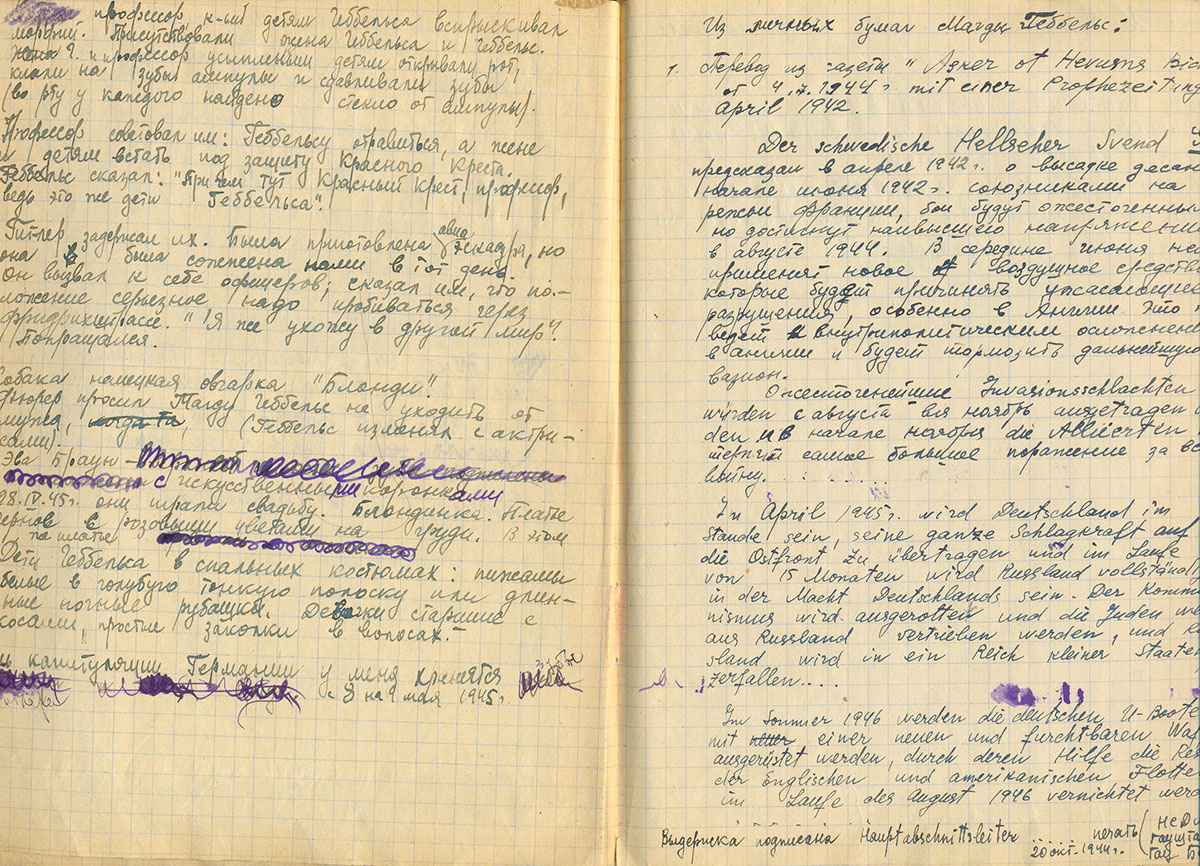 профессор, к-ый детям Геббельса впрыскивал
морфий. Присутствовали жена Геббельса и Геббельс.
и профессор усыпленным детям открывали рот,
клали на зубы ампулы и сдавливали зубы
(во рту у каждого найдено стекло от ампулы).
Профессор советовал им: Геббельсу отравиться, а жене
и детям встать под защиту Красного Креста.
Геббельс сказал: "При чем тут Красный Крест, профессор,
ведь это же дети Геббельса".
Гитлер задержал их. Была приготовлена авиа эскадра, но
она была сожжена нами в тот день.
Он вызвал к себе офицеров; сказал им, что по-
ложение серьезное надо пробиваться через
Фридрихштрассе. "Я же ухожу в другой мир".
Попрощался.
Собака немецкая овчарка "Блонди"!
Фюрер просил Магду Геббельс не уходить от
мужа, (Геббельс изменял с актри-
сами).
Эва Браун –
с искусственными коронками
28.IV.45г. они играли свадьбу. Блондинка. Платье
с розовыми цветами на груди. В этом
Дети Геббельса в спальных костюмах: пижамы
белые в голубую тонкую полоску или длин-
ные ночные рубашки. Девочки старшие с
косами, простые заколки в волосах.
капитуляции Германии у меня хранятся зубы
с 8 на 9 мая 1945г.
Из личных бумаг Магды Геббельс:
1. Перевод из газеты "
от 4. 1944г mit einer Prophezeitung
April 1942.
Der schwedische Hellseher Svend
предсказал в апреле 1942г. о высадке десан
начале июня 1942г. союзниками на
режьи Франции, бои будут ожесточенным
но достигнут наивысшего напряжени
в августе 1944. В середине июня не
применят новое воздушное средств
которые будет причинять ужасающее
разрушения, особенно в Англии. Это
ведет к внутриполитическим осложнени
в англии и будет тормозить дальнейшую
вазион.
Ожесточеннейшие Invasionsschlachten
würden с августа bis ноябрь ausgetragen
den и в начале ноября die Alliierten
терпят самое большое поражение за вс
войну. . . . . . . . .
Im April 1945. wird Deutschland im
Stande sein, seine ganze Schlagkraft auf
die Ostfront zu übertragen und im Laufe
von 15 Monaten wird Russland vollständ
in der Macht Deutschlands sein. Der Komm
nismus wird ausgerotten und die Juden we
aus Russland vertrieben werden, und
sland wird in ein Reich kleiner Staaten
zerfallen....
Im Sommer 1946 werden die deutschen U-Boote
mit einer neuen und furchtbaren Waf
ausgerüstet werden, durch deren Hilfe die Re
der Englischen und amerikanischen Flotte
im Laufe des August 1946 vernichtet werd
Выдержка подписана Hauptabschnittsleiter ..... печать (
20 окт. 1944г.